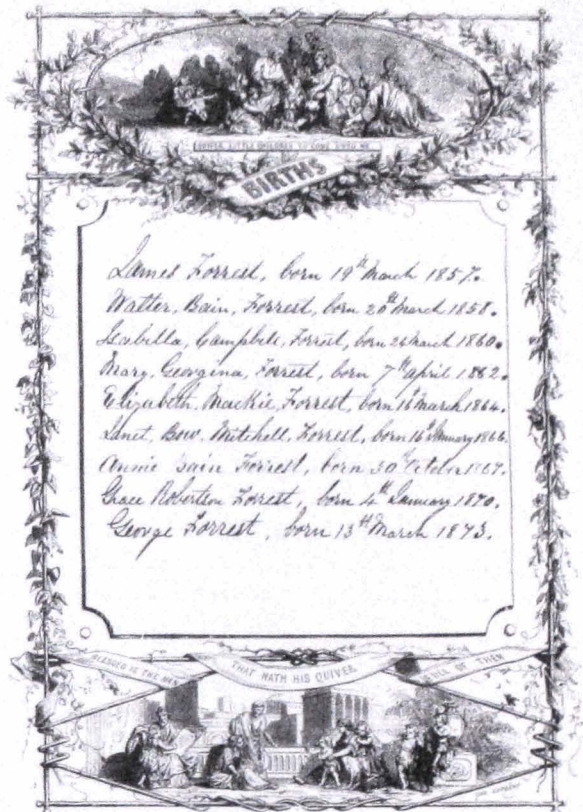 SUFFER LITTLE CHILDREN TO COME UNTO ME
BIRTHS
James Forrest, born 19th March 1857.
Walter, Bain, Forrest, born 20th March 1858.
Isabella, Campbell, Forrest, born 26 March 1860.
Mary, Georgina, Forrest, born 7th April 1862.
Elizabeth, Mackie, Forrest, born 16th March 1864.
Janet, Bow. Mitchell, Forrest, born 16th January 1866.
Annie Bain Forrest, born 30th October 1867.
Grace Robertson Forrest, born 4th January 1870.
George Forrest, born 13th March 1873.
BLESSED IS THE MAN THAT HATH HIS QUIVER FULL OF THEM